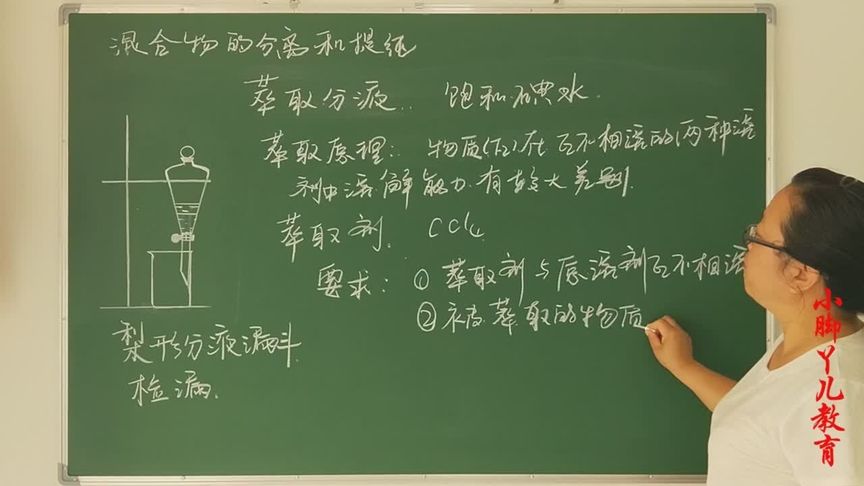 混合物的分离和提纯
萃取分液.. 饱和碘水.
萃取原理: 物质(I₂)在互不相溶的两种溶
剂中溶解能力有较大差别.
萃取剂. CCl₄
要求: ① 萃取剂与原溶剂互不相溶
② 被萃取的物质
梨形分液漏斗
检漏.
小脚丫儿教育